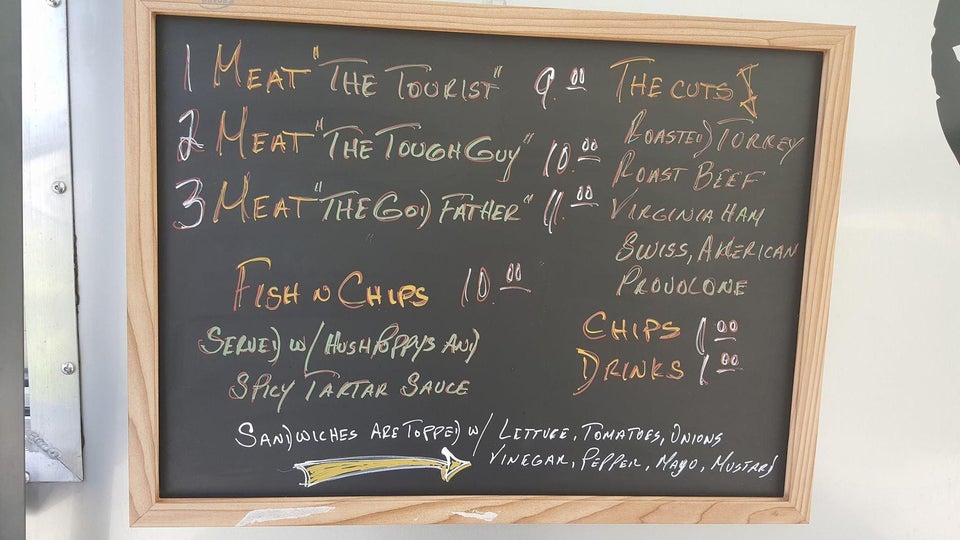 1 MEAT "THE TOURIST" 9.00
2 MEAT "THE TOUGH GUY" 10.00
3 MEAT "THE GOD FATHER" 11.00
FISH N CHIPS 10.00
SERVED W/ HUSHPOPPYS AND
SPICY TARTAR SAUCE
THE CUTS
ROASTED TURKEY
ROAST BEEF
VIRGINIA HAM
SWISS, AMERICAN
PROVOLONE
CHIPS 1.00
DRINKS 1.00
SANDWICHES ARE TOPPED W/ LETTUCE, TOMATOES, ONIONS
VINEGAR, PEPPER, MAYO, MUSTARD